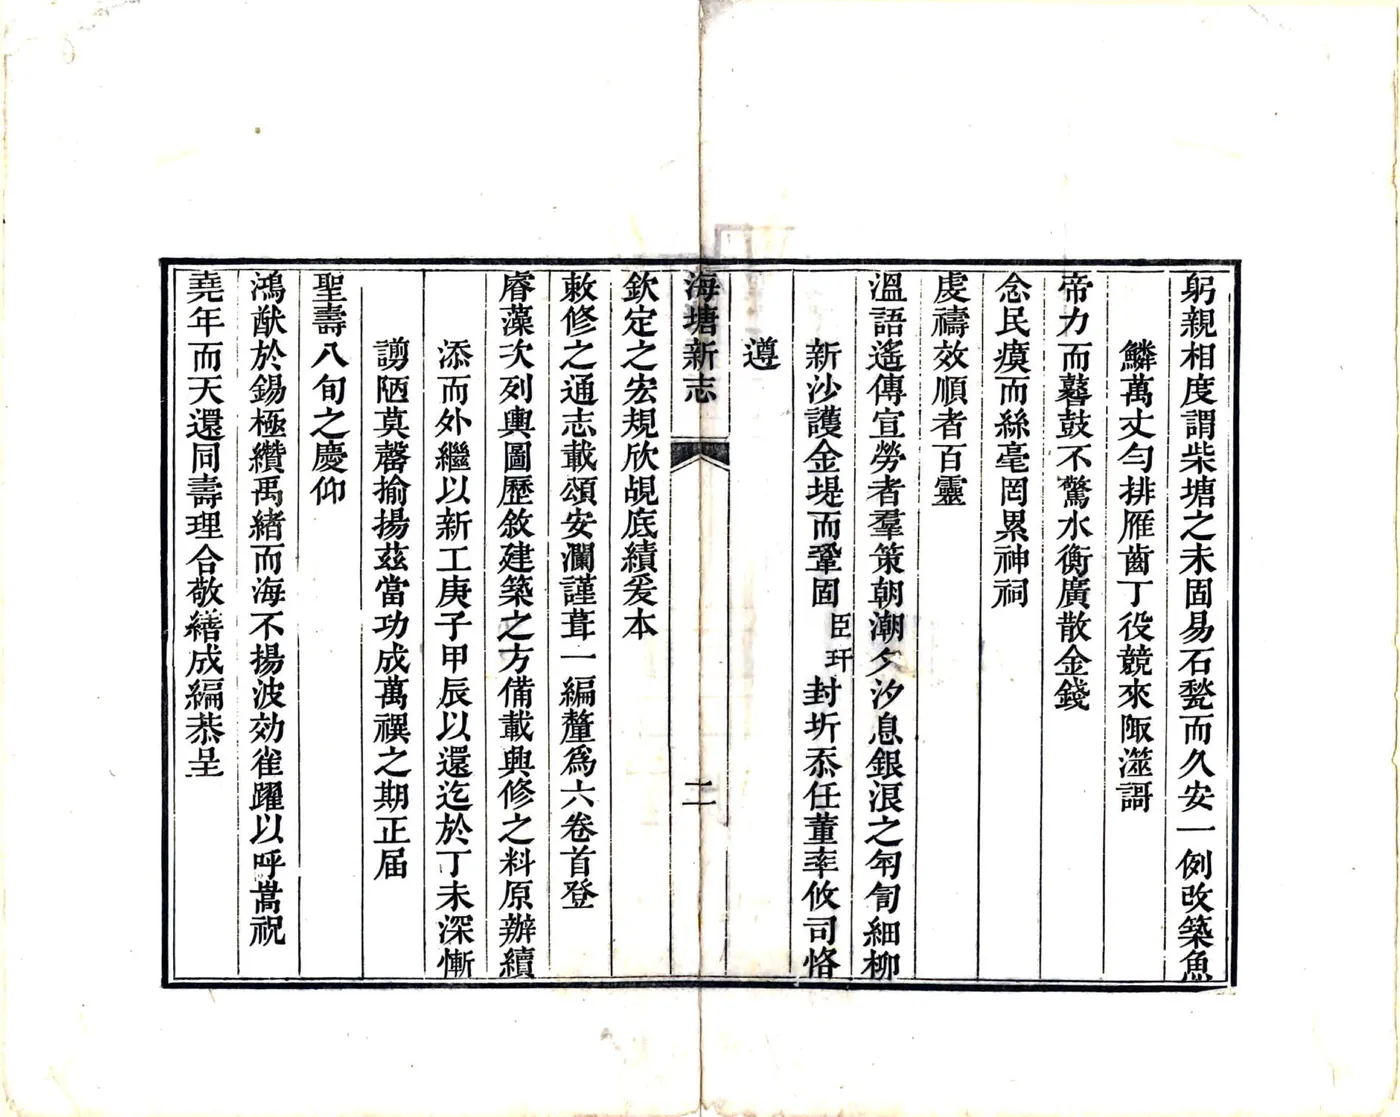 躬親相度謂柴塘之未固易石甃而久安一例改築魚
鱗萬丈勻排雁齒丁役競來陬澨謌
帝力而鼛鼓不驚水衡廣散金錢
念民瘼而絲毫罔累神祠
虔禱效順者百靈
溫語遙傳宣勞者羣策朝潮夕汐息銀浪之匉訇細柳
新沙護金堤而鞏固臣玕封圻忝任董率攸司恪
遵
海塘新志
二
欽定之宏規欣覩底績爰本
敕修之通志載頌安瀾謹葺一編釐爲六卷首登
睿藻次列輿圖歷敘建築之方備載興修之料原辦續
添而外繼以新工庚子甲辰以還迄於丁未深慚
謭陋莫罄揄揚茲當功成萬禩之期正届
聖壽八旬之慶仰
鴻猷於錫極纘禹緒而海不揚波効雀躍以呼嵩祝
堯年而天還同壽理合敬繕成編恭呈